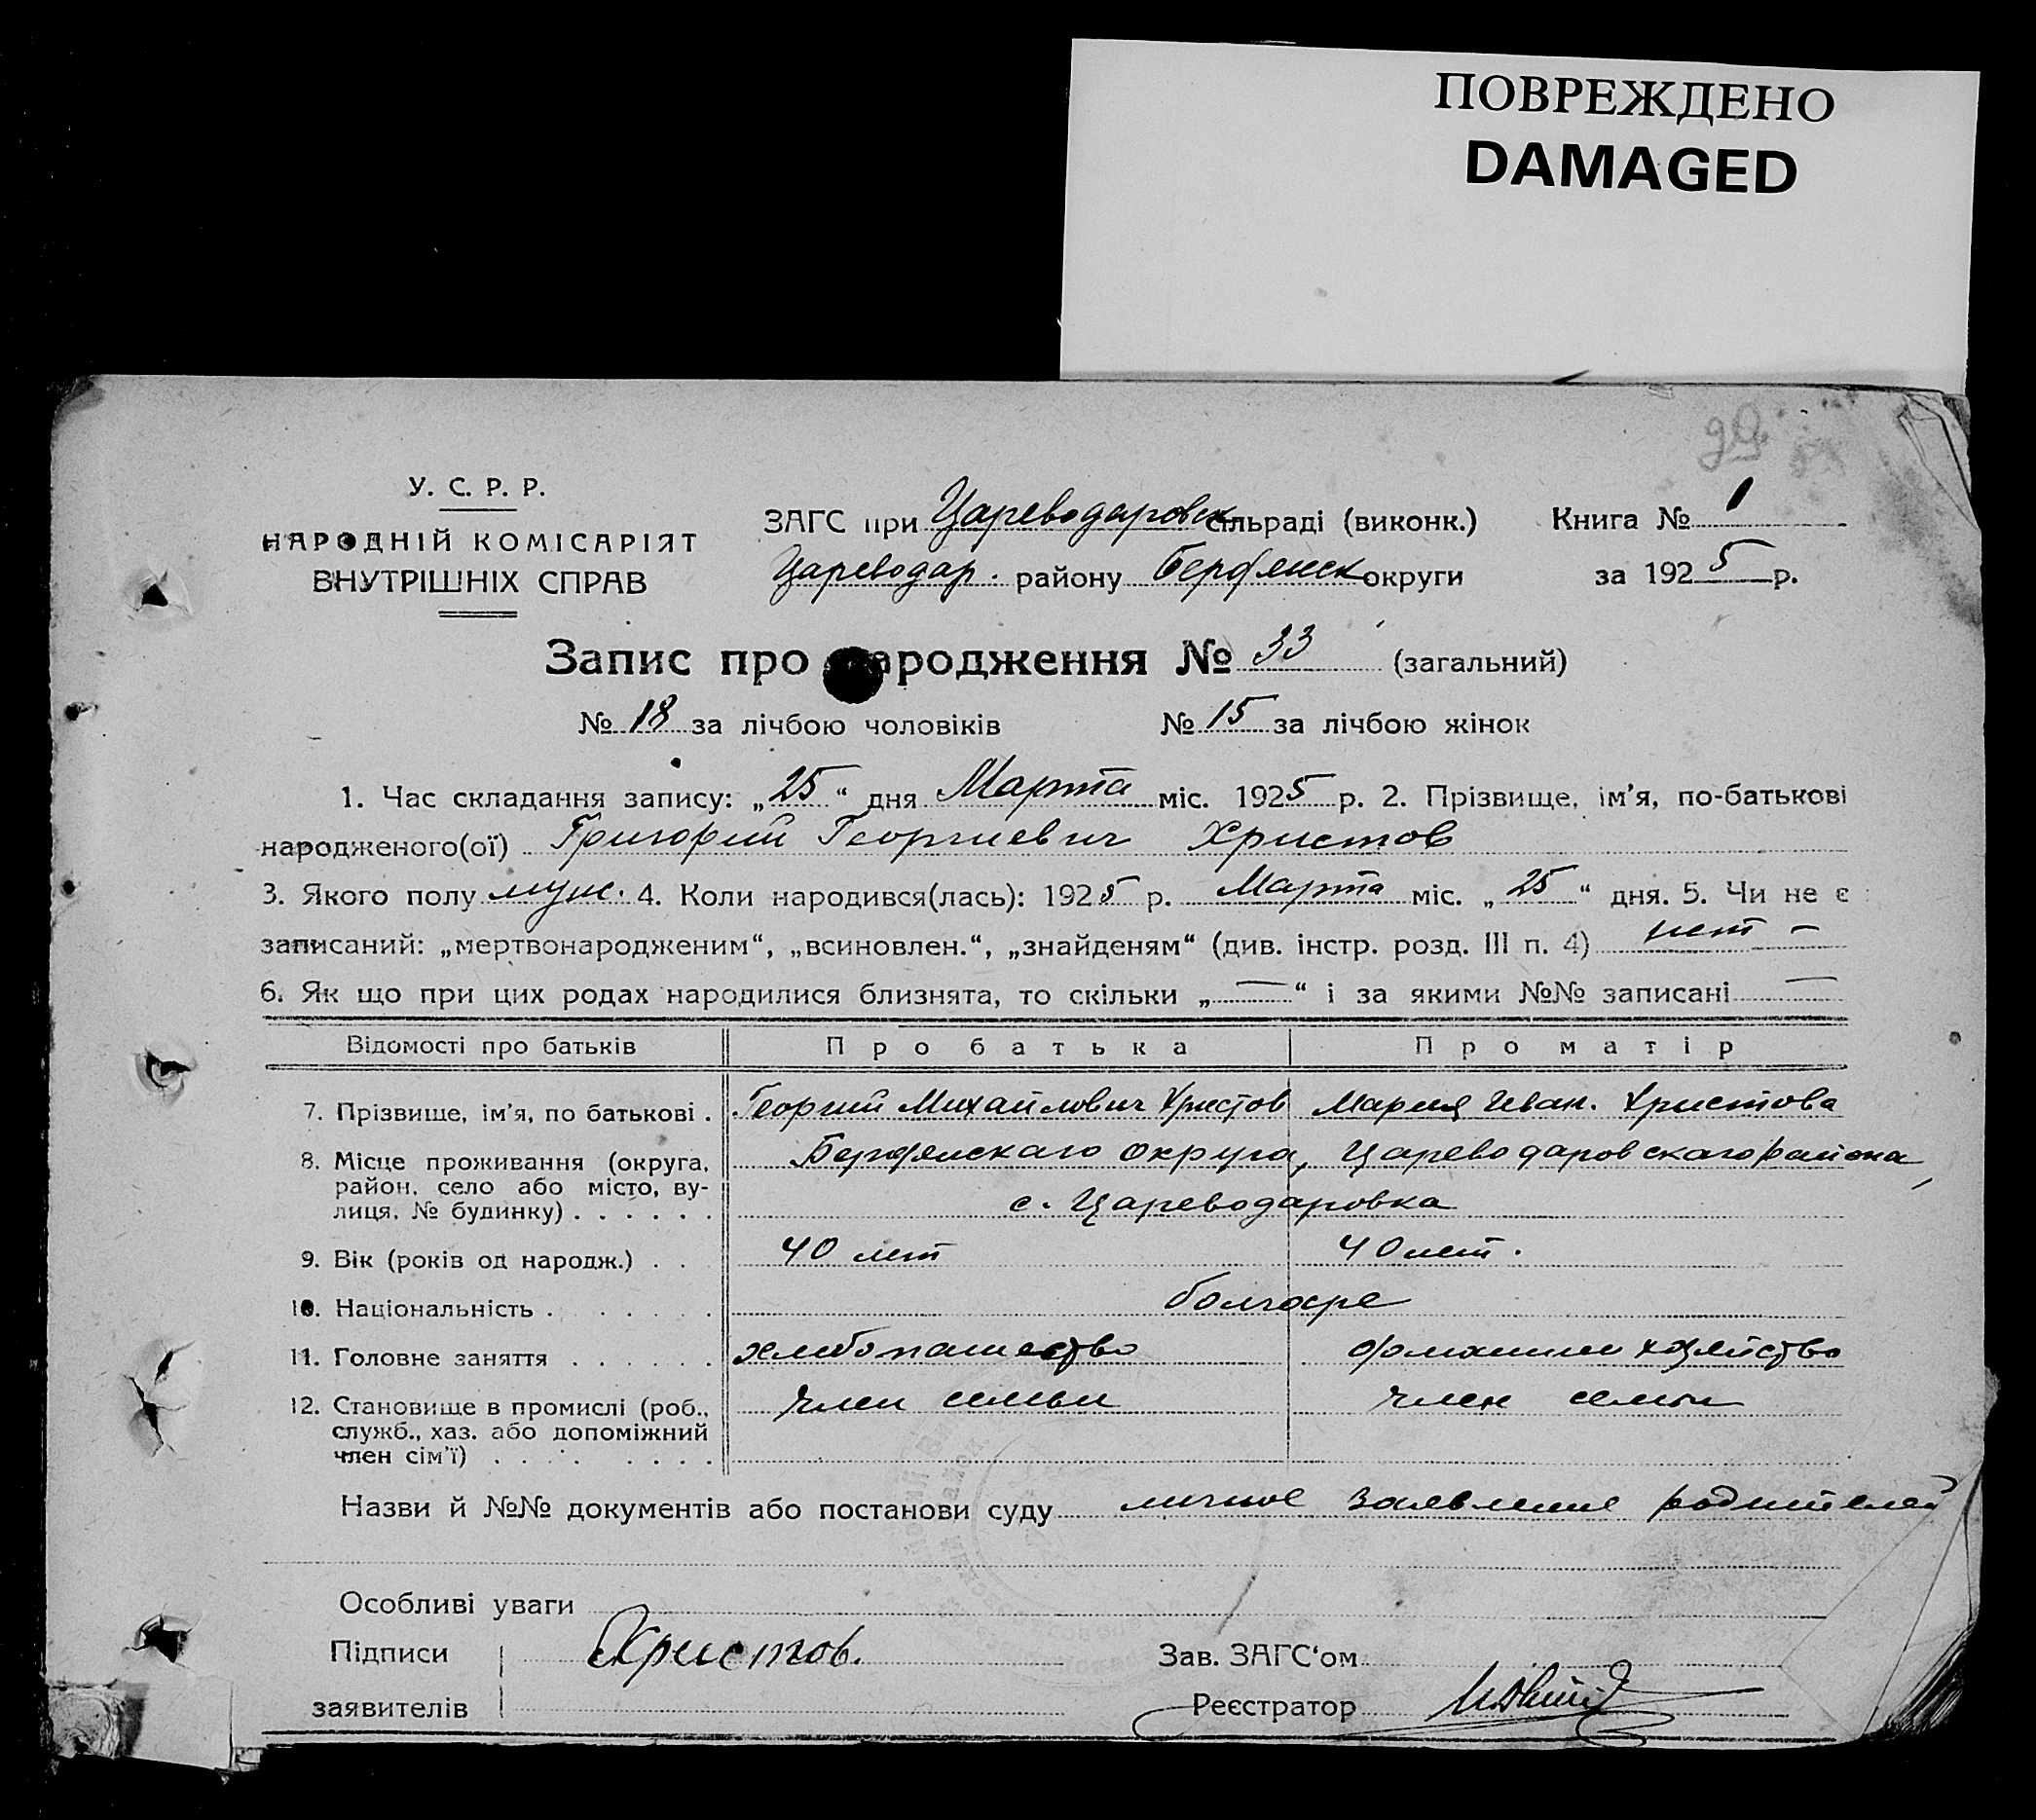 ПОВРЕЖДЕНО
DAMAGED
У. С. Р. Р.
НАРОДНІЙ КОМІСАРІЯТ
ВНУТРІШНІХ СПРАВ
ЗАГС при Цареводаровск сільраді (виконк.) Книга № 1
Цареводар. району Бердянск округи за 1925 р.
Запис про народження № 33 (загальний)
№ 18 за лічбою чоловіків № 15 за лічбою жінок
1. Час складання запису: „25“ дня Марта міс. 1925 р. 2. Прізвище, ім’я, по-батькові
народженого(ої) Григорий Георгиевич Христов
3. Якого полу муж. 4. Коли народився(лась): 1925 р. Марта міс. „25“ дня. 5. Чи не є
записаний: „мертвонародженим“, „всиновлен.“, „знайденям“ (див. інстр. розд. III п. 4) нет —
6. Як що при цих родах народилися близнята, то скільки „—“ і за якими №№ записані —
Відомості про батьків Про батька Про матір
7. Прізвище, ім’я, по батькові . Георгий Михайлович Христов Мария Иван. Христова
8. Місце проживання (округа, район, село або місто, вулиця, № будинку) . . . . . . Бердянскаго округа, Цареводаровскаго района,
с. Цареводаровка
9. Вік (років од народж.) . . 40 лет 40 лет.
10. Національність . . . . . болгаре
11. Головне заняття . . . . . . хлебопашество домашнее хозяйство
12. Становище в промислі (роб., служб., хаз. або допоміжний член сім’ї) . . . . . . . . член семьи член семьи
Назви й №№ документів або постанови суду личное заявление родителей
Особливі уваги
Підписи
заявителів
Христов.
Зав. ЗАГС‘ом
Реєстратор